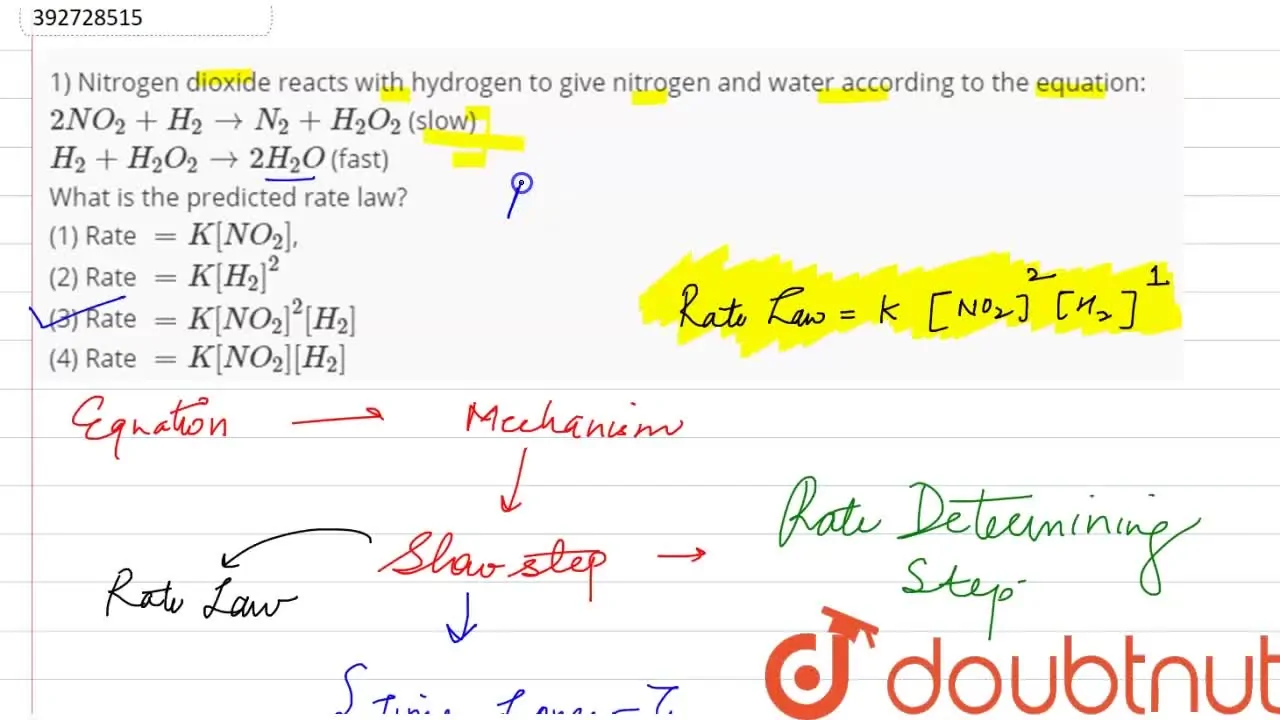 392728515
1) Nitrogen dioxide reacts with hydrogen to give nitrogen and water according to the equation:
2NO₂ + H₂ → N₂ + H₂O₂ (slow)
H₂ + H₂O₂ → 2H₂O (fast)
What is the predicted rate law?
(1) Rate = K[NO₂],
(2) Rate = K[H₂]²
(3) Rate = K[NO₂]²[H₂]
(4) Rate = K[NO₂][H₂]
Rate Law = K [NO₂]² [H₂]¹
Equation → Mechanism
Slow step → Rate Determining Step
Rate Law
doubtnut